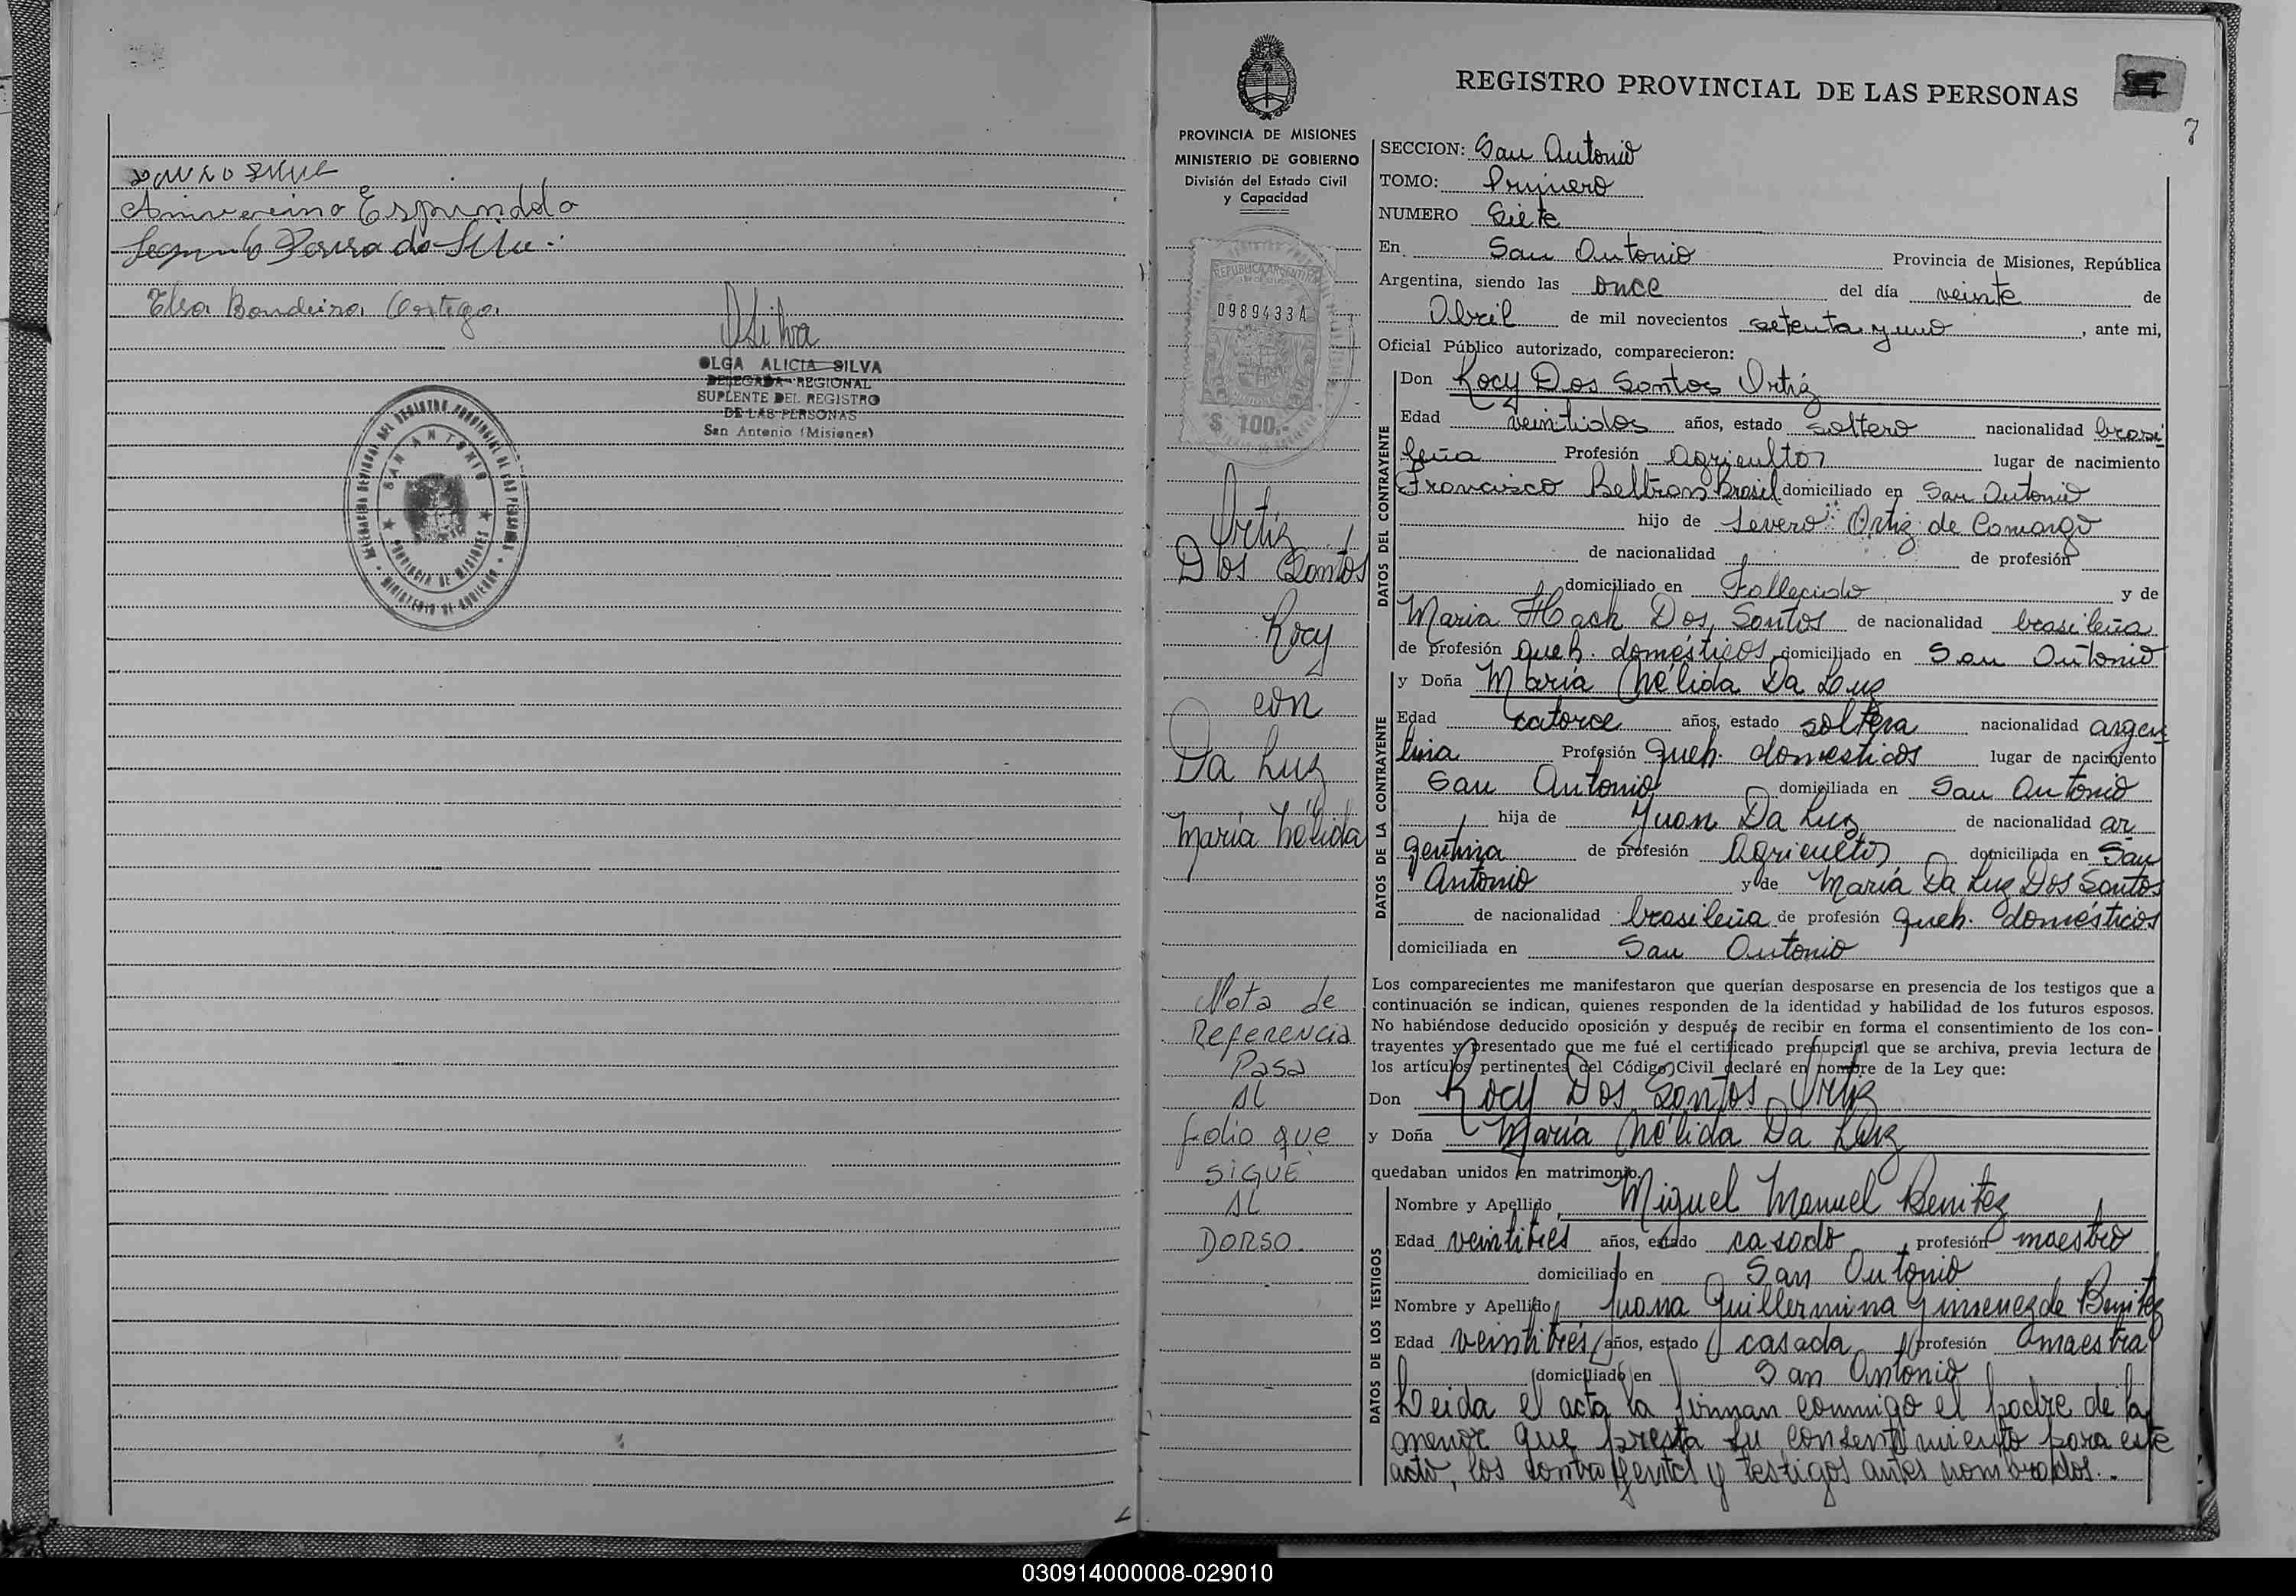 Espindola
Elsa Bandeira Ortega
OLGA ALICIA SILVA
DELEGADA REGIONAL
SUPLENTE DEL REGISTRO
DE LAS PERSONAS
San Antonio (Misiones)
SAN ANTONIO
PROVINCIA DE MISIONES
MINISTERIO DE GOBIERNO
REGISTRO PROVINCIAL DE LAS PERSONAS
7
PROVINCIA DE MISIONES
MINISTERIO DE GOBIERNO
División del Estado Civil
y Capacidad
REPUBLICA ARGENTINA
0989433A
$ 100.-
Ortiz
Dos Santos
Rocy
con
Da Luz
María Nélida
Nota de
Referencia
Pasa
al
folio que
sigue
al
dorso.
SECCION: San Antonio
TOMO: Primero
NUMERO Siete
En San Antonio Provincia de Misiones, República
Argentina, siendo las once del día veinte de
Abril de mil novecientos setenta y uno, ante mi,
Oficial Público autorizado, comparecieron:
DATOS DEL CONTRAYENTE
Don Rocy Dos Santos Ortiz
Edad veintidos años, estado soltero nacionalidad brasi
leña Profesión Agricultor lugar de nacimiento
Francisco Beltran Brasil domiciliado en San Antonio
hijo de Severo Ortiz de Camargo
de nacionalidad de profesión
domiciliado en Fallecido y de
Maria Hach Dos Santos de nacionalidad brasileña
de profesión queh. domésticos domiciliado en San Antonio
DATOS DE LA CONTRAYENTE
y Doña María Nélida Da Luz
Edad catorce años, estado soltera nacionalidad argen
tina Profesión queh. domesticos lugar de nacimiento
San Antonio domiciliada en San Antonio
hija de Juan Da Luz de nacionalidad ar
gentina de profesión Agricultor domiciliada en San
Antonio y de María Da Luz Dos Santos
de nacionalidad brasileña de profesión queh. domésticos
domiciliada en San Antonio
Los comparecientes me manifestaron que querían desposarse en presencia de los testigos que a
continuación se indican, quienes responden de la identidad y habilidad de los futuros esposos.
No habiéndose deducido oposición y después de recibir en forma el consentimiento de los con-
trayentes y presentado que me fué el certificado prenupcial que se archiva, previa lectura de
los artículos pertinentes del Código Civil declaré en nombre de la Ley que:
Don Rocy Dos Santos Ortiz
y Doña María Nélida Da Luz
quedaban unidos en matrimonio.
DATOS DE LOS TESTIGOS
Nombre y Apellido Miguel Manuel Benitez
Edad veintitres años, estado casado profesión maestro
domiciliado en San Antonio
Nombre y Apellido Juana Guillermina Gimenez de Benitez
Edad veintitrés años, estado casada profesión maestra
domiciliado en San Antonio
Leida el acta la firman conmigo el padre de la
menor que presta su consentimiento para este
acto, los contrayentes y testigos antes nombrados.-
030914000008-029010